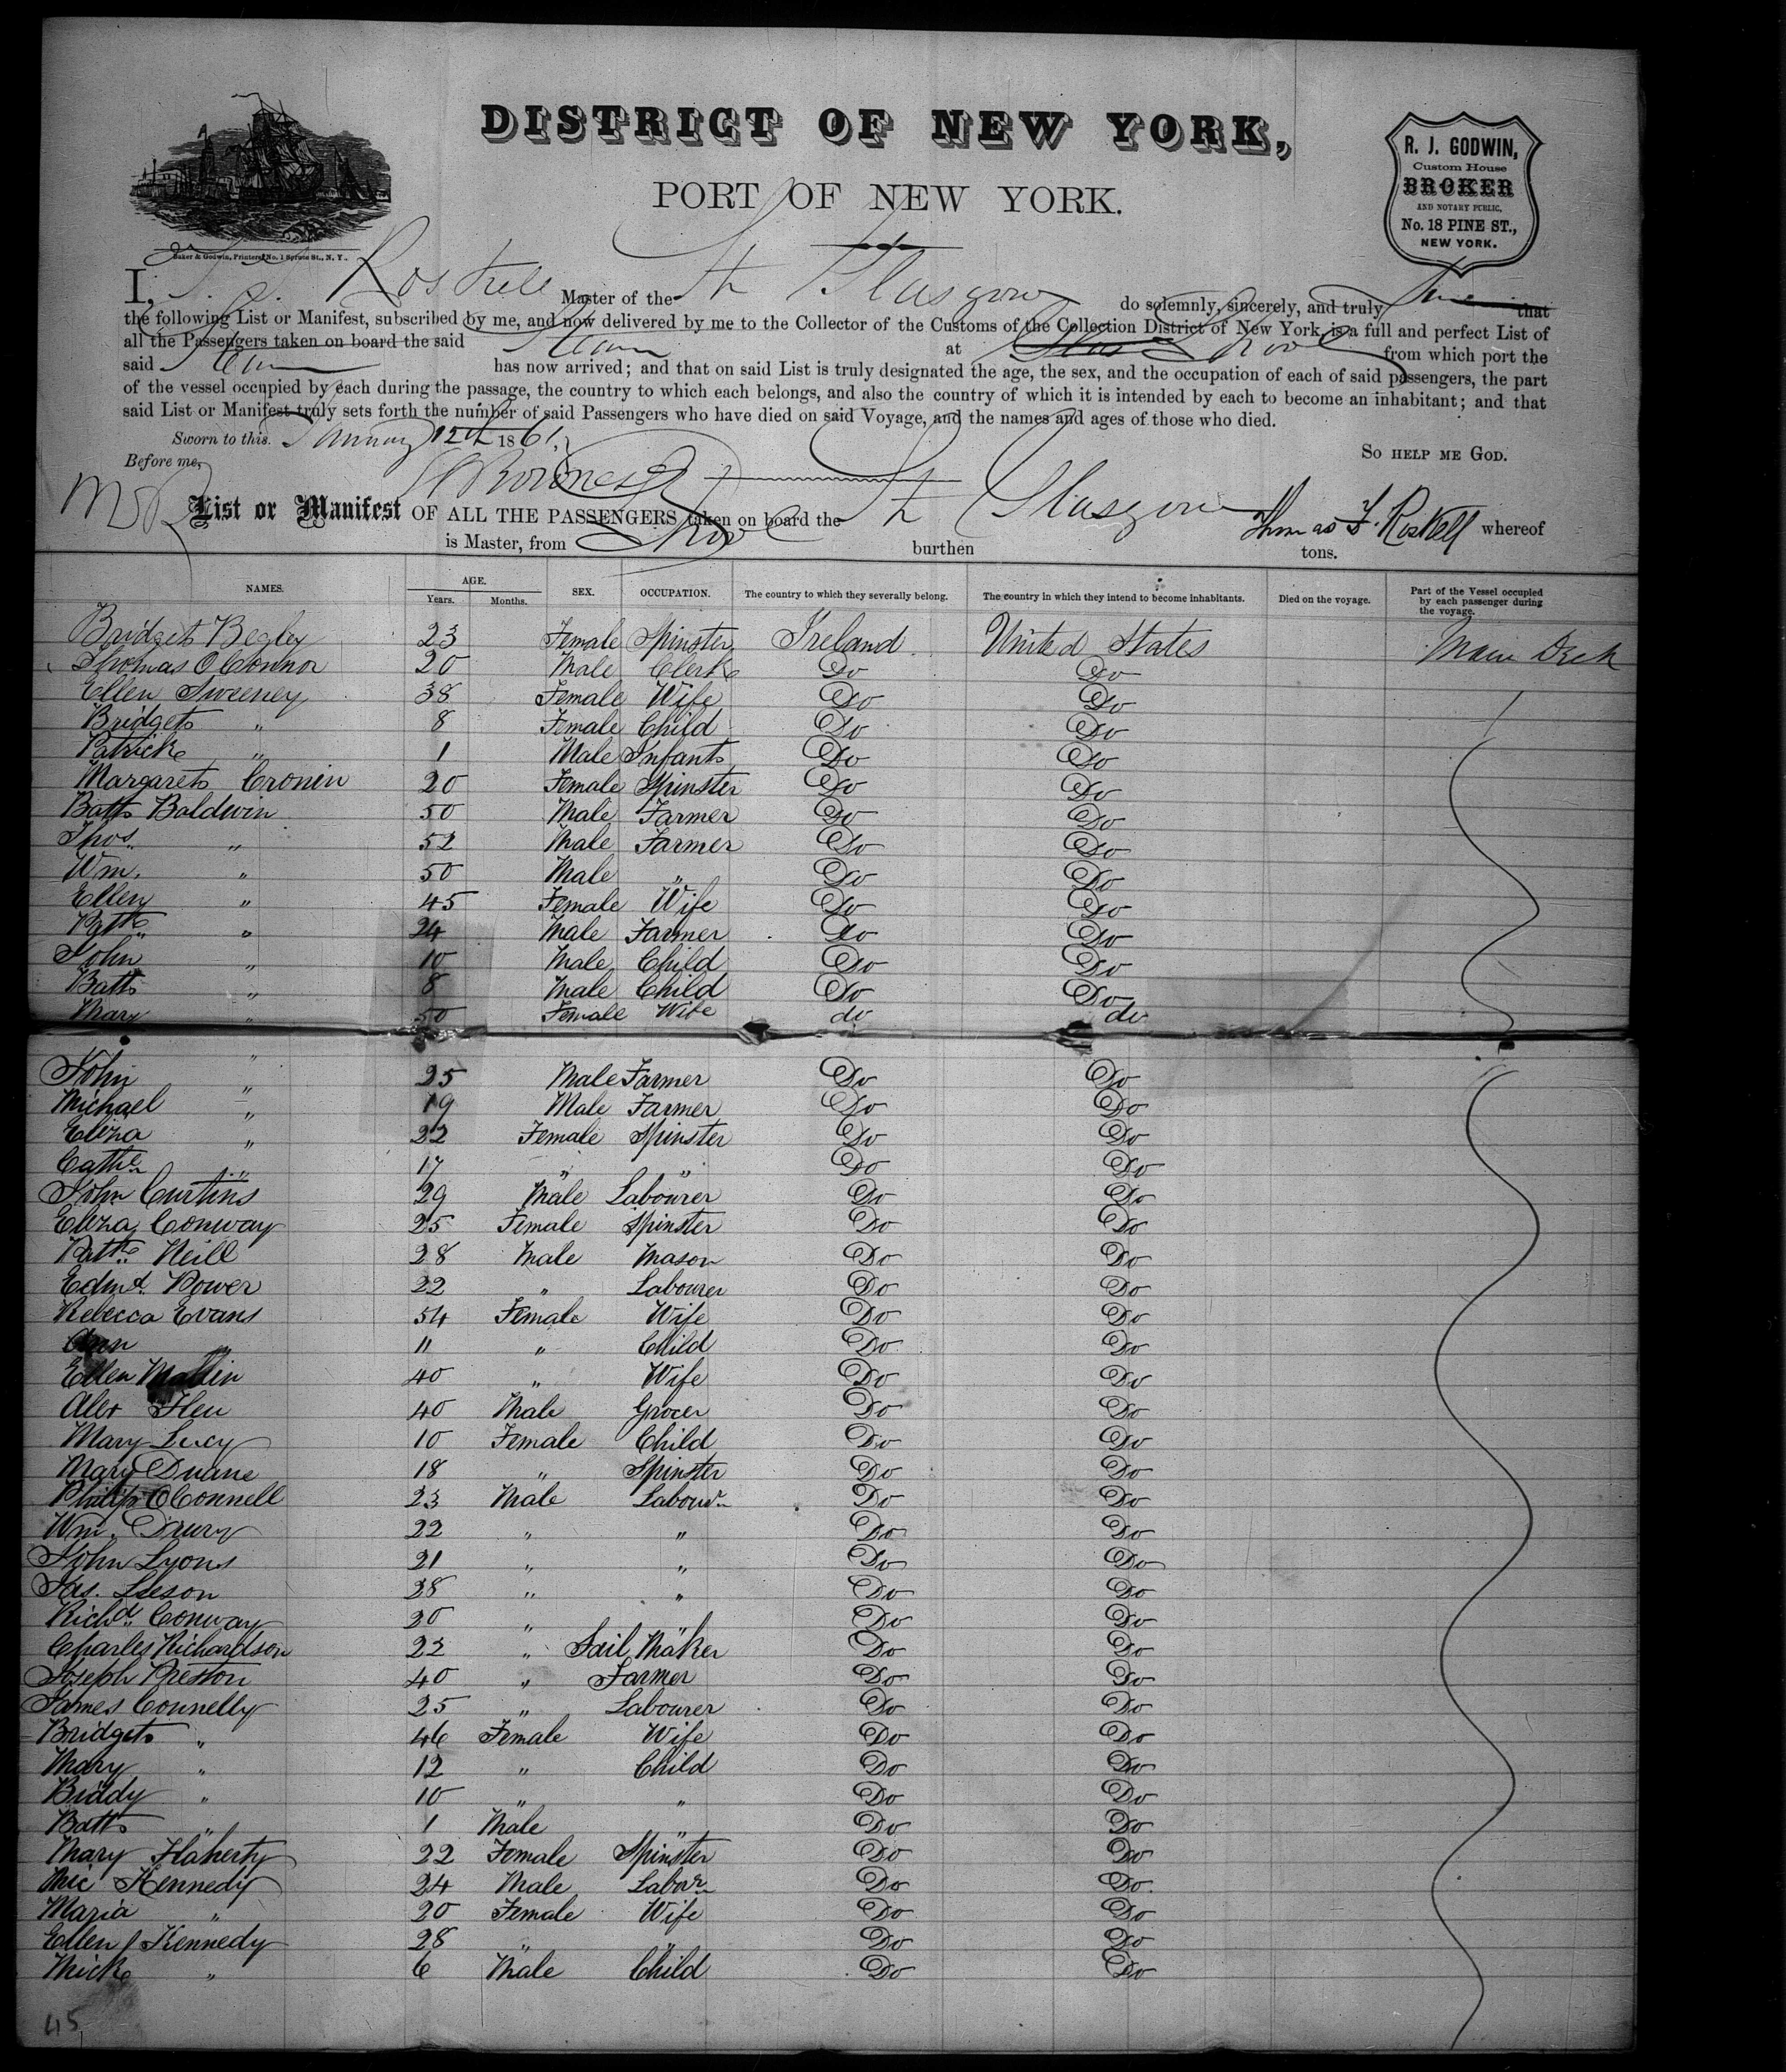 DISTRICT OF NEW YORK,
PORT OF NEW YORK.
R. J. GODWIN,
Custom House
BROKER
AND NOTARY PUBLIC,
No. 18 PINE ST.,
NEW YORK.
Baker & Godwin, Printers, No. 1 Spruce St., N. Y.
I, Roskell Master of the St Glasgow do solemnly, sincerely, and truly that
the following List or Manifest, subscribed by me, and now delivered by me to the Collector of the Customs of the Collection District of New York, is a full and perfect List of
all the Passengers taken on board the said Steamer at from which port the
said has now arrived; and that on said List is truly designated the age, the sex, and the occupation of each of said passengers, the part
of the vessel occupied by each during the passage, the country to which each belongs, and also the country of which it is intended by each to become an inhabitant; and that
said List or Manifest truly sets forth the number of said Passengers who have died on said Voyage, and the names and ages of those who died.
Sworn to this January 12th 1861, SO HELP ME GOD.
Before me,
List or Manifest OF ALL THE PASSENGERS taken on board the St Glasgow Thomas F. Roskell whereof
is Master, from L'pool burthen tons.
NAMES. AGE. Years. Months. SEX. OCCUPATION. The country to which they severally belong. The country in which they intend to become inhabitants. Died on the voyage. Part of the Vessel occupied by each passenger during the voyage.
Bridget Begley 23 Female Spinster Ireland United States Main Deck
Thomas O'Connor 20 Male Clerk Do Do
Ellen Sweeney 38 Female Wife Do Do
Bridget " 8 Female Child Do Do
Patrick " 1 Male Infant Do Do
Margaret Cronin 20 Female Spinster Do Do
Batt Baldwin 50 Male Farmer Do Do
Thos. " 52 Male Farmer Do Do
Wm. " 50 Male " Do Do
Ellen " 45 Female Wife Do Do
Patk " 24 Male Farmer Do Do
John " 10 Male Child Do Do
Batt " 8 Male Child Do Do
Mary " 50 Female Wife do do
John " 25 Male Farmer Do Do
Michael " 19 Male Farmer Do Do
Eliza " 22 Female Spinster Do Do
Cathe " 17 " " Do Do
John Curtins 29 Male Labourer Do Do
Eliza Conway 25 Female Spinster Do Do
Patk Neill 28 Male Mason Do Do
Edmd Power 22 " Labourer Do Do
Rebecca Evans 54 Female Wife Do Do
Ann " 11 " Child Do Do
Ellen 40 " Wife Do Do
Alex 40 Male Grocer Do Do
Mary Lucy 10 Female Child Do Do
Mary Duane 18 " Spinster Do Do
Philip O'Connell 23 Male Labour Do Do
Wm. Drury 22 " " Do Do
John Lyons 21 " " Do Do
Jas. Leeson 28 " " Do Do
Richd Conway 20 " " Do Do
Charles Richardson 22 " Sail Maker Do Do
Joseph Preston 40 " Farmer Do Do
James Connelly 25 " Labourer Do Do
Bridget " 46 Female Wife Do Do
Mary " 12 " Child Do Do
Biddy " 10 " " Do Do
Batt " 1 Male " Do Do
Mary Flaherty 22 Female Spinster Do Do
Mic Kennedy 24 Male Labour Do Do
Maria " 20 Female Wife Do Do
Ellen Kennedy 28 " " Do Do
Mick " 6 Male Child Do Do
45